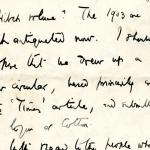 volume" The 1903 are
antiquated now. I should
that we drew up a
circular, based primarily
"Times" article, and submit
or Cotton
regard to the people who